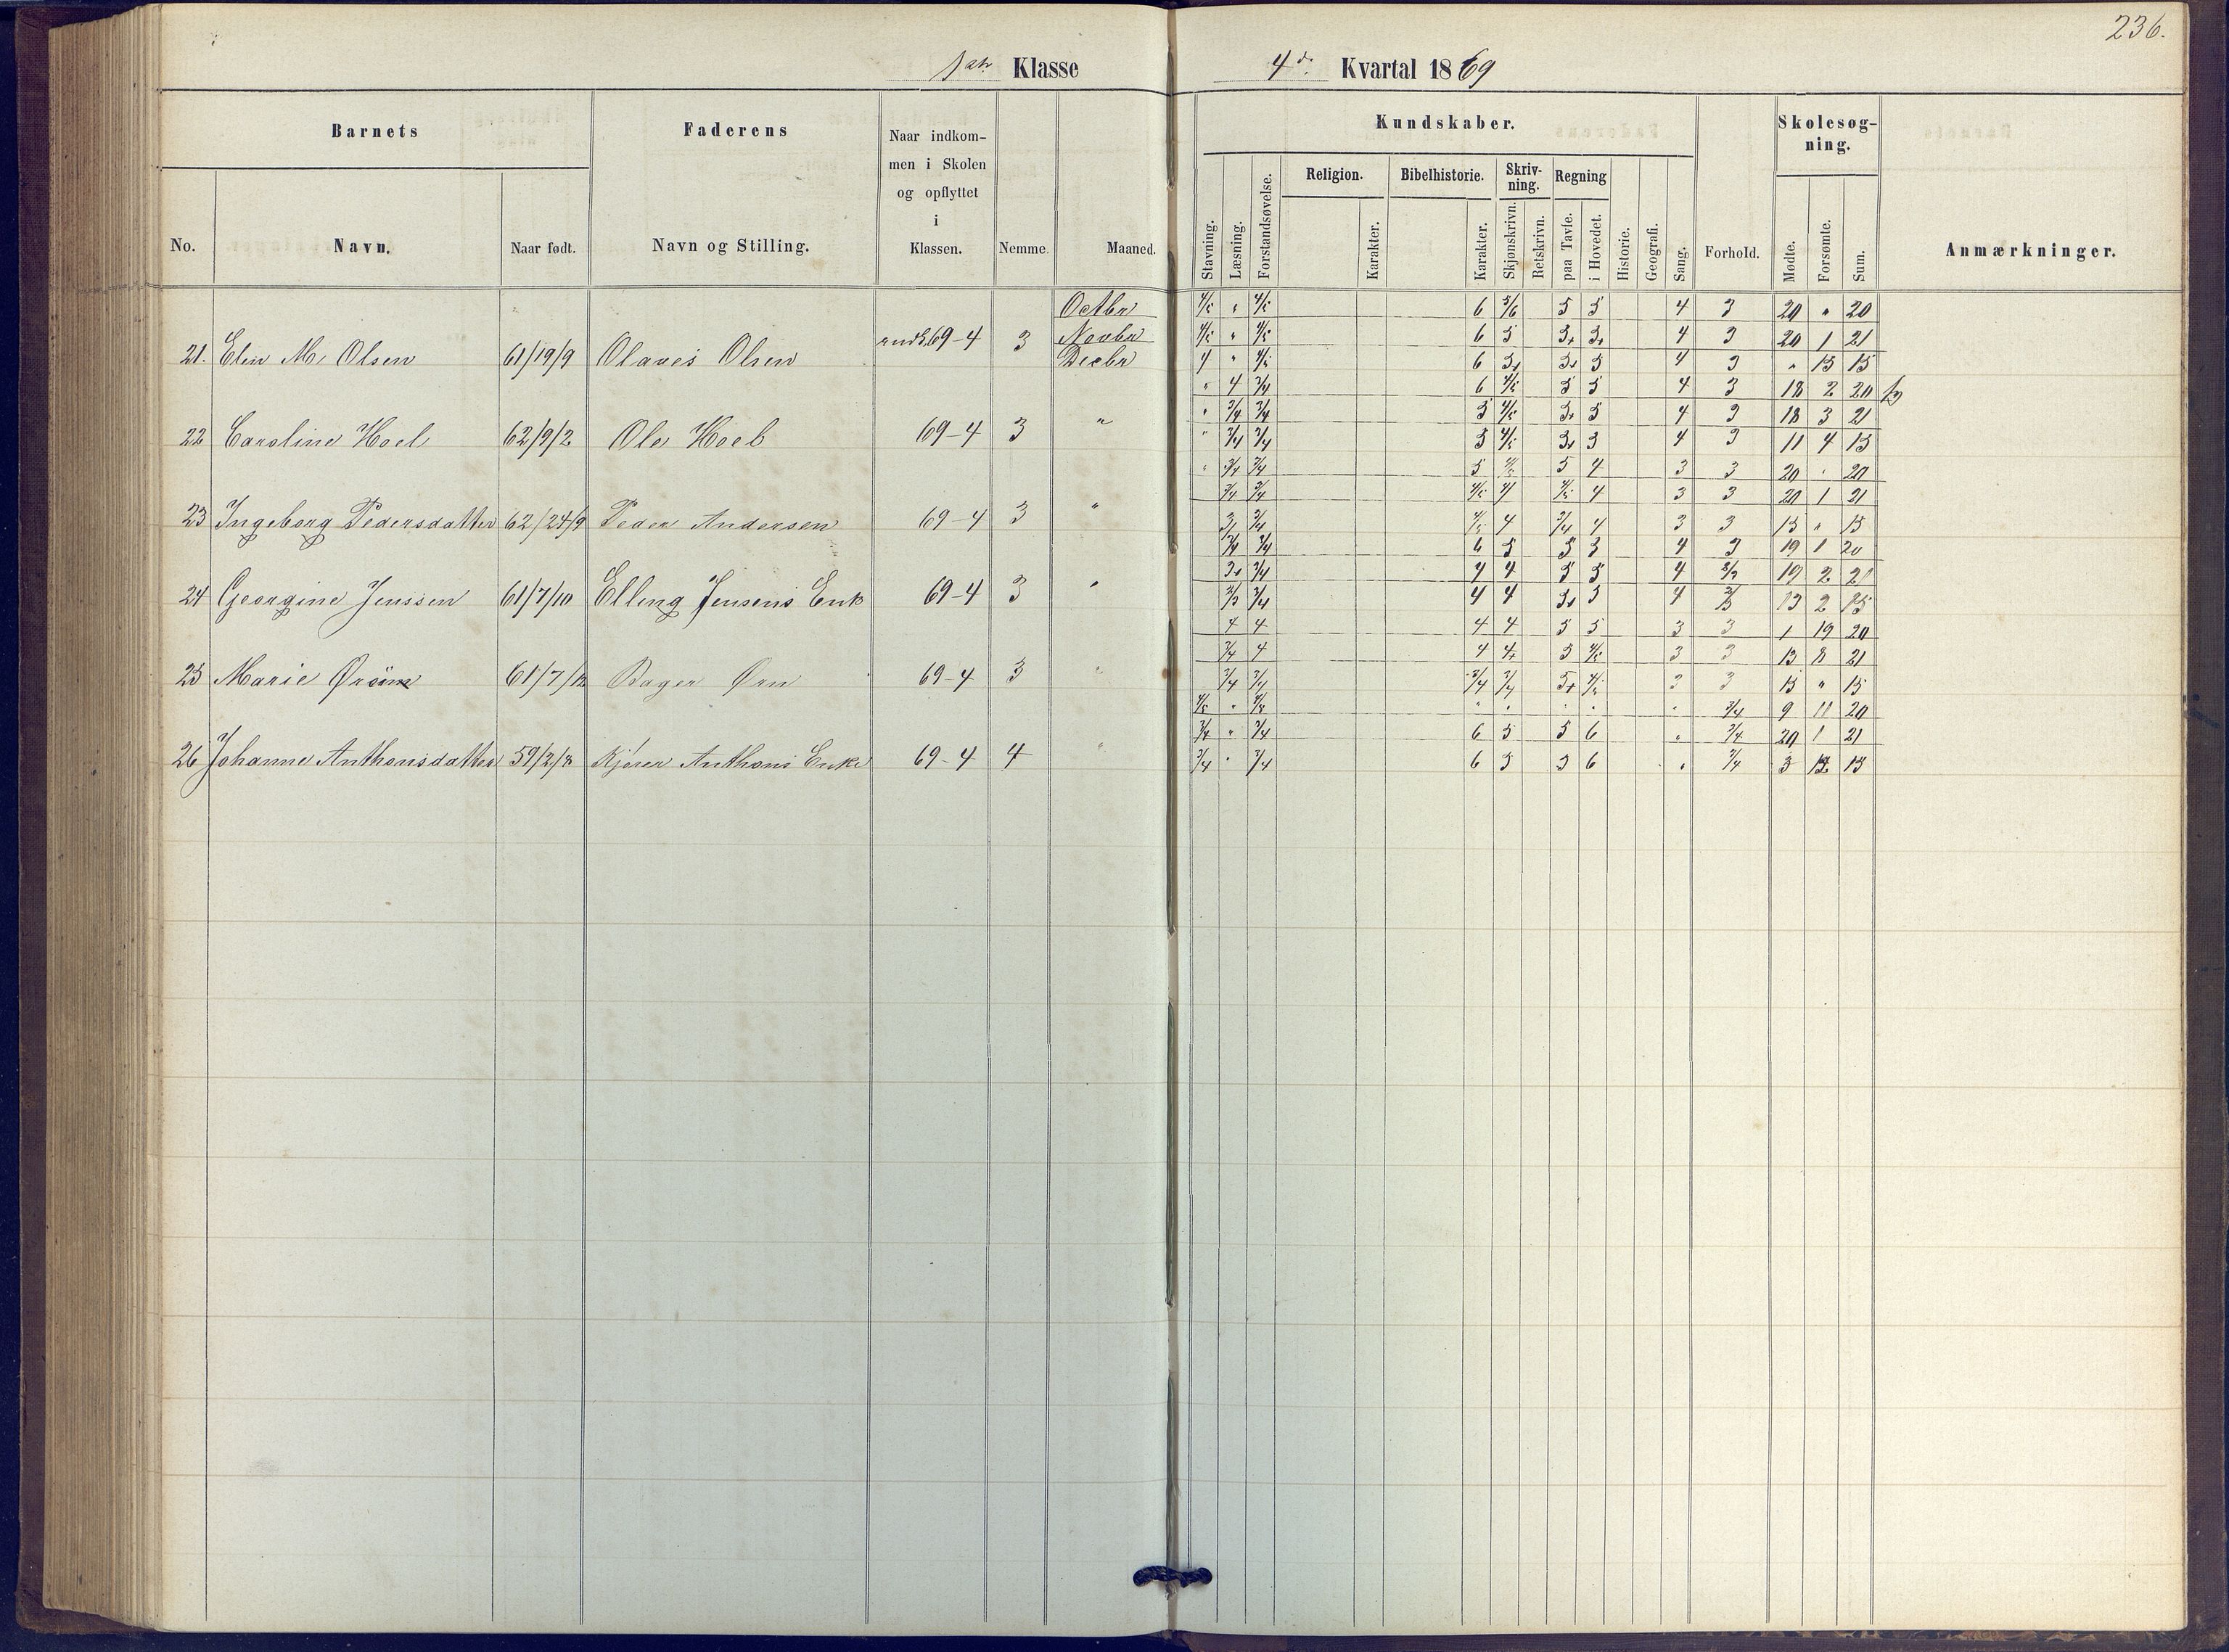 236.
Klasse
4de Kvartal 1869
Barnets
Faderens
Naar indkom-
men i Skolen
og opflyttet
i
Klassen.
No.
Navn.
Naar født.
Navn og Stilling.
Nemme.
Maaned.
Kundskaber.
Stavning.
Læsning.
Forstandsøvelse.
Religion.
Karakter.
Bibelhistorie.
Karakter.
Skriv-
ning.
Skjønskrivn.
Retskrivn.
Regning
paa Tavle.
i Hovedet.
Historie.
Geografi.
Sang.
Forhold.
Skolesøg-
ning.
Mødte.
Forsømte.
Sum.
Anmærkninger.
Octbr 4/5 " 4/5 6 5/6 5 5 4 3 20 " 20
Novbr 4/5 " 4/5 6 5 4 3 20 1 21
21. Elin M. Olsen 61/19/9 Olaves Olsen 69-4 3 Decbr 4 " 4/5 6 4 3 " 15 15
" 4 3/4 6 4/5 5 5 4 3 18 2 20
" 3/4 3/4 5 4/5 5 4 3 18 3 21
22 Caroline Hoel 62/9/2 Ole Hoel 69-4 3 " " 3/4 3/4 5 4/5 4 3 11 4 15
" 3/4 3/4 5 5 4 3 3 20 " 20
3/4 3/4 4/5 4 4/5 4 3 3 20 1 21
23 Ingeborg Pedersdatter 62/24/9 Peder Andersen 69-4 3 " 3/4 4/5 4 3/4 4 3 3 15 " 15
3/4 3/4 5 4 3 19 1 20
3/4 4 4 5 5 4 19 2 21
24 Georgine Jenssen 61/7/10 Elling Jensens Enk 69-4 3 " 3/4 4 4 4 13 2 15
4 4 4 4 5 5 3 3 1 19 20
3/4 4 4 4+ 4/5 3 3 13 8 21
25 Marie 61/7/12 Bager Ørn 69-4 3 " 3/4 3/4 3/4 3/4 5+ 4/5 3 3 15 " 15
4/5 " " " " " " 3/4 9 11 20
3/4 " 3/4 6 5 5 6 " 3/4 20 1 21
26 Johanne Anthonsdatter 59/2/8 Anthons Enke 69-4 4 " 3/4 " 3/4 6 6 " 3/4 3 12 15